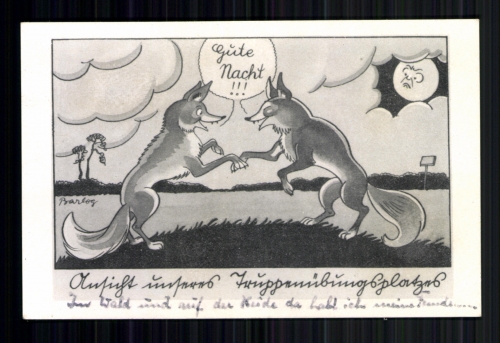 Gute
Nacht
!!!
Barlog
Ansicht unseres Truppenübungsplatzes
Im Wald und auf der Heide da hab ich meine Freude